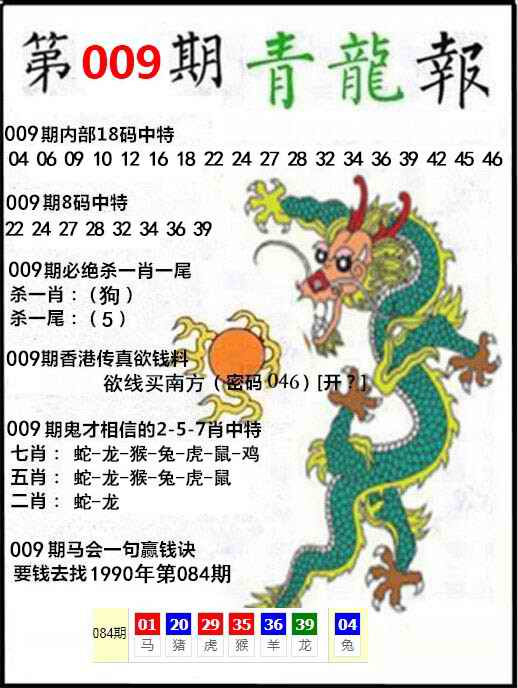 第009期 青龍報
009期内部18码中特
04 06 09 10 12 16 18 22 24 27 28 32 34 36 39 42 45 46
009期8码中特
22 24 27 28 32 34 36 39
009期必绝杀一肖一尾
杀一肖：（狗）
杀一尾：（5）
009期香港传真欲钱料
欲线买南方（密码046）[开？]
009期鬼才相信的2-5-7肖中特
七肖： 蛇-龙-猴-兔-虎-鼠-鸡
五肖： 蛇-龙-猴-兔-虎-鼠
二肖： 蛇-龙
009期马会一句赢钱诀
要钱去找1990年第084期
084期 01 20 29 35 36 39 04
马 猪 虎 猴 羊 龙 兔